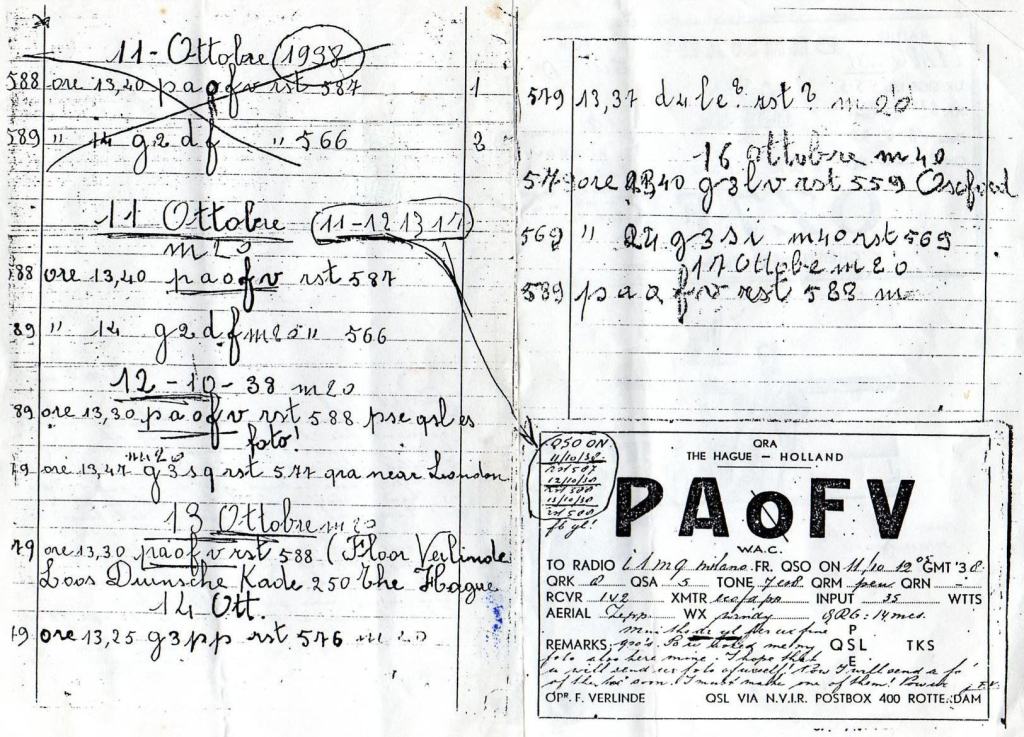 11 - Ottobre 1938
588 ore 13,40 paofv rst 587 1
589 " 14 g2df " 566 2
11 Ottobre 11-12 13 14
m 20
88 ore 13,40 paofv rst 587
89 " 14 g2df m20 " 566
12-10-38 m20
89 ore 13,30 paofv rst 588 pse qsl es
foto!
m20
79 ore 13,47 g3sq rst 577 qra near London
13 Ottobre m20
79 ore 13,30 paofv rst 588 (Floor Verlinde
Loos Duinsche Kade 250 the Hague
14 Ott.
79 ore 13,25 g3pp rst 576 m 20
579 13,37 d4le? rst? m 20
16 ottobre m40
ore 40 g3lv rst 559
569 " g3si m40 rst 569
17 Ottobe m20
589 paofv rst 588 m
QSO ON
11/10/38
rst 587
12/10/38
13/10/38
fb yl!
QRA
THE HAGUE — HOLLAND
PAoFV
W.A.C.
TO RADIO i1mq milano FR. QSO ON 11/10 GMT '38
QRK QSA 5 TONE QRM QRN -
RCVR 1V2 XMTR INPUT 35 WTTS
AERIAL Zepp WX windy
P
REMARKS: QSL TKS
foto also here mine. I hope that E
u will send us foto
I must make one of them!
OPR. F. VERLINDE QSL VIA N.V.I.R. POSTBOX 400 ROTTERDAM